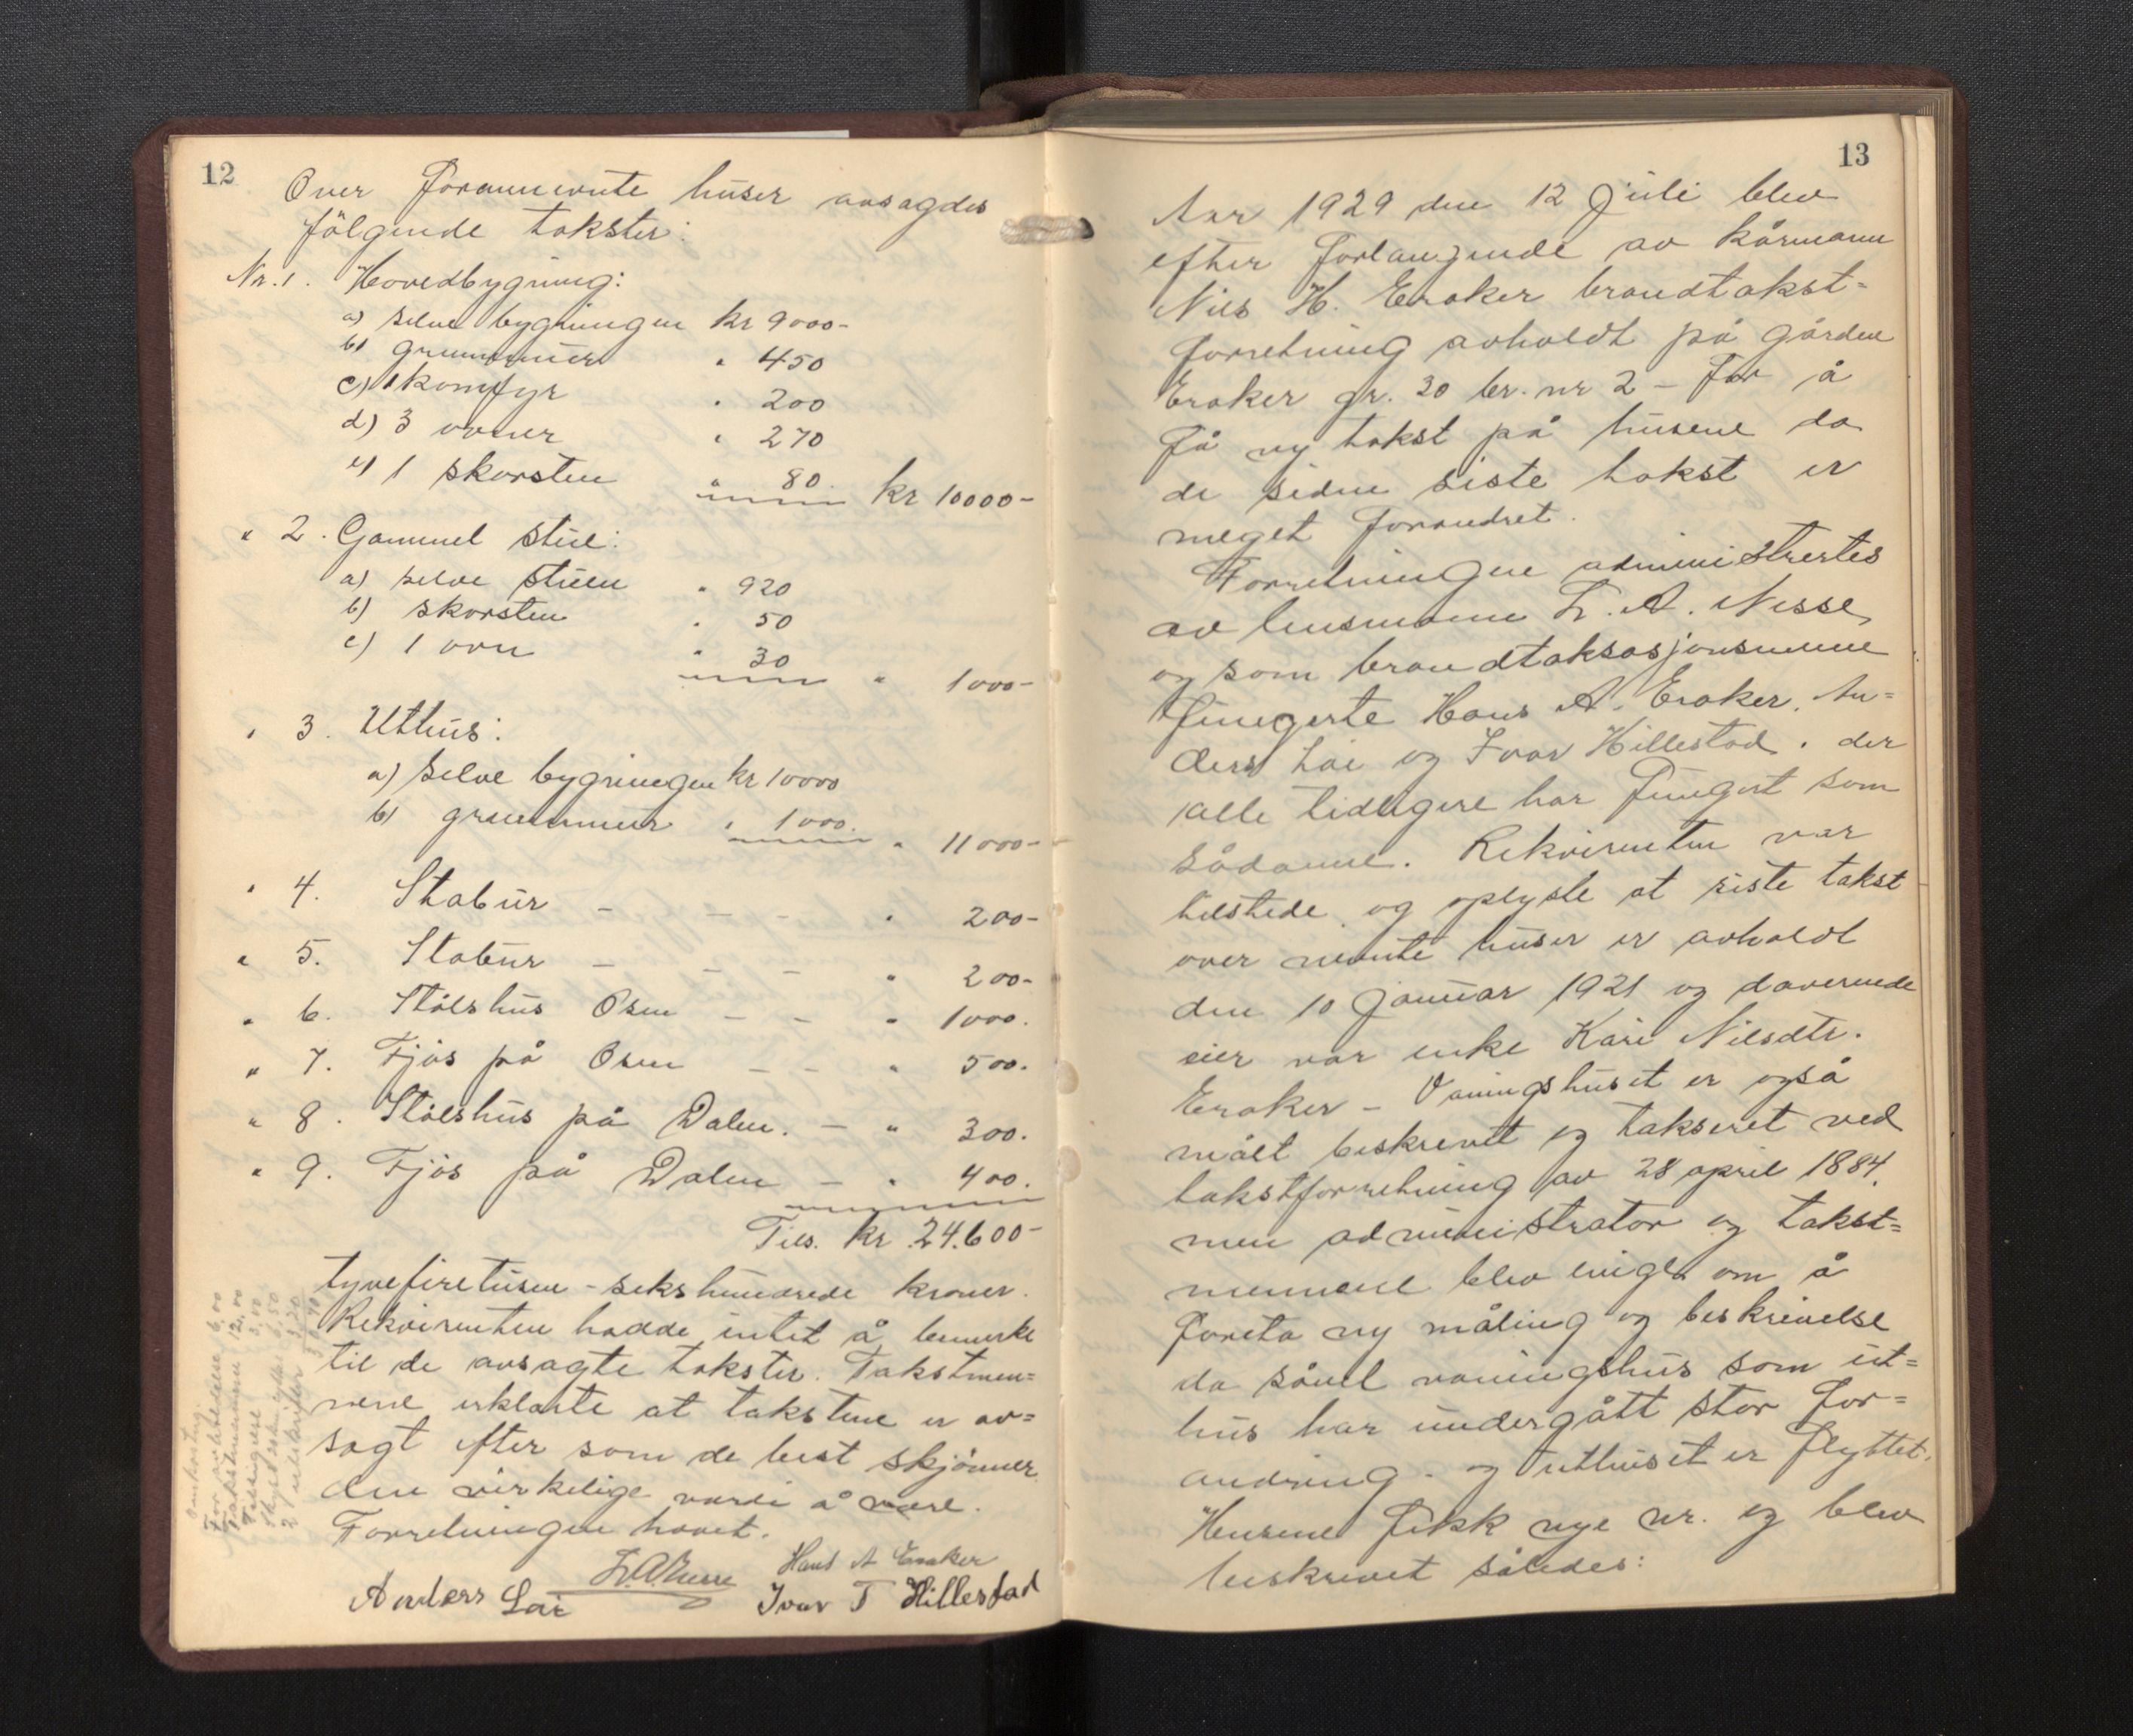 12
Over forannevnte huser avsagdes
følgende takster:
Nr. 1. Hovedbygning:
a) selve bygningen kr 9000-
b) grunnmur " 450
c) 1 komfyr " 200
d) 3 ovner " 270
e) 1 skorsten " 80. kr 10000-
" 2. Gammel stue:
a) selve stuen " 920
b) skorsten " 50
c) 1 ovn " 30 " 1000-
" 3. Uthus:
a) selve bygningen kr 10000
b) grunnmur " 1000. " 11000-
" 4. Stabur - - - " 200-
" 5. Stabur - - - " 200-
" 6. Stølshus Osen - - " 1000.
" 7. Fjøs på Osen - - " 500.
" 8. Stølshus på Dalen. - " 300.
" 9. Fjøs på Dalen - " 400.
Tils. kr 24.600-
tyvefiretusen - sekshundrede kroner.
Rekvirenten hadde intet å bemerke
til de avsagte takster. Takstmen=
nene erklærte at takstene er av=
sagt efter som de best skjønner
den virkelige verdi å være.
Forretningen hevet.
L.A. Nesse Hans A Eraker
Anders Loi Ivar T Hillestad
For utarbeidelse 6,00
Takstmennene 12,00
13
Aar 1929 den 12 juli blev
efter forlangende av kårmann
Nils H. Eraker brandtakst=
forretning avholdt på gården
Eraker gr. 30 br. nr 2 - for å
få ny takst på husene da
de siden siste takst er
meget forandret.
Forretningen administrertes
av lensmann L. A. Nesse,
og som brandtaksasjonsmenn
fungerte Hans A. Eraker, An=
ders Loi og Ivar Hillestad, der
alle tidligere har fungert som
sådanne. Rekvirenten var
tilstede og oplyste at siste takst
over nevnte huser er avholdt
den 10 januar 1921 og daverende
eier var enke Kari Nilsdtr.
Eraker - Vaningshuset er også
målt beskrevet og taksert ved
takstforretning av 28 april 1884,
men administrator og takst=
mennene blev enige om å
foreta ny måling og beskrivelse
da såvel vaningshus som ut=
hus har undergått stor for=
andring - og uthuset er flyttet.
Husene fikk nye nr. og blev
beskrevet således: